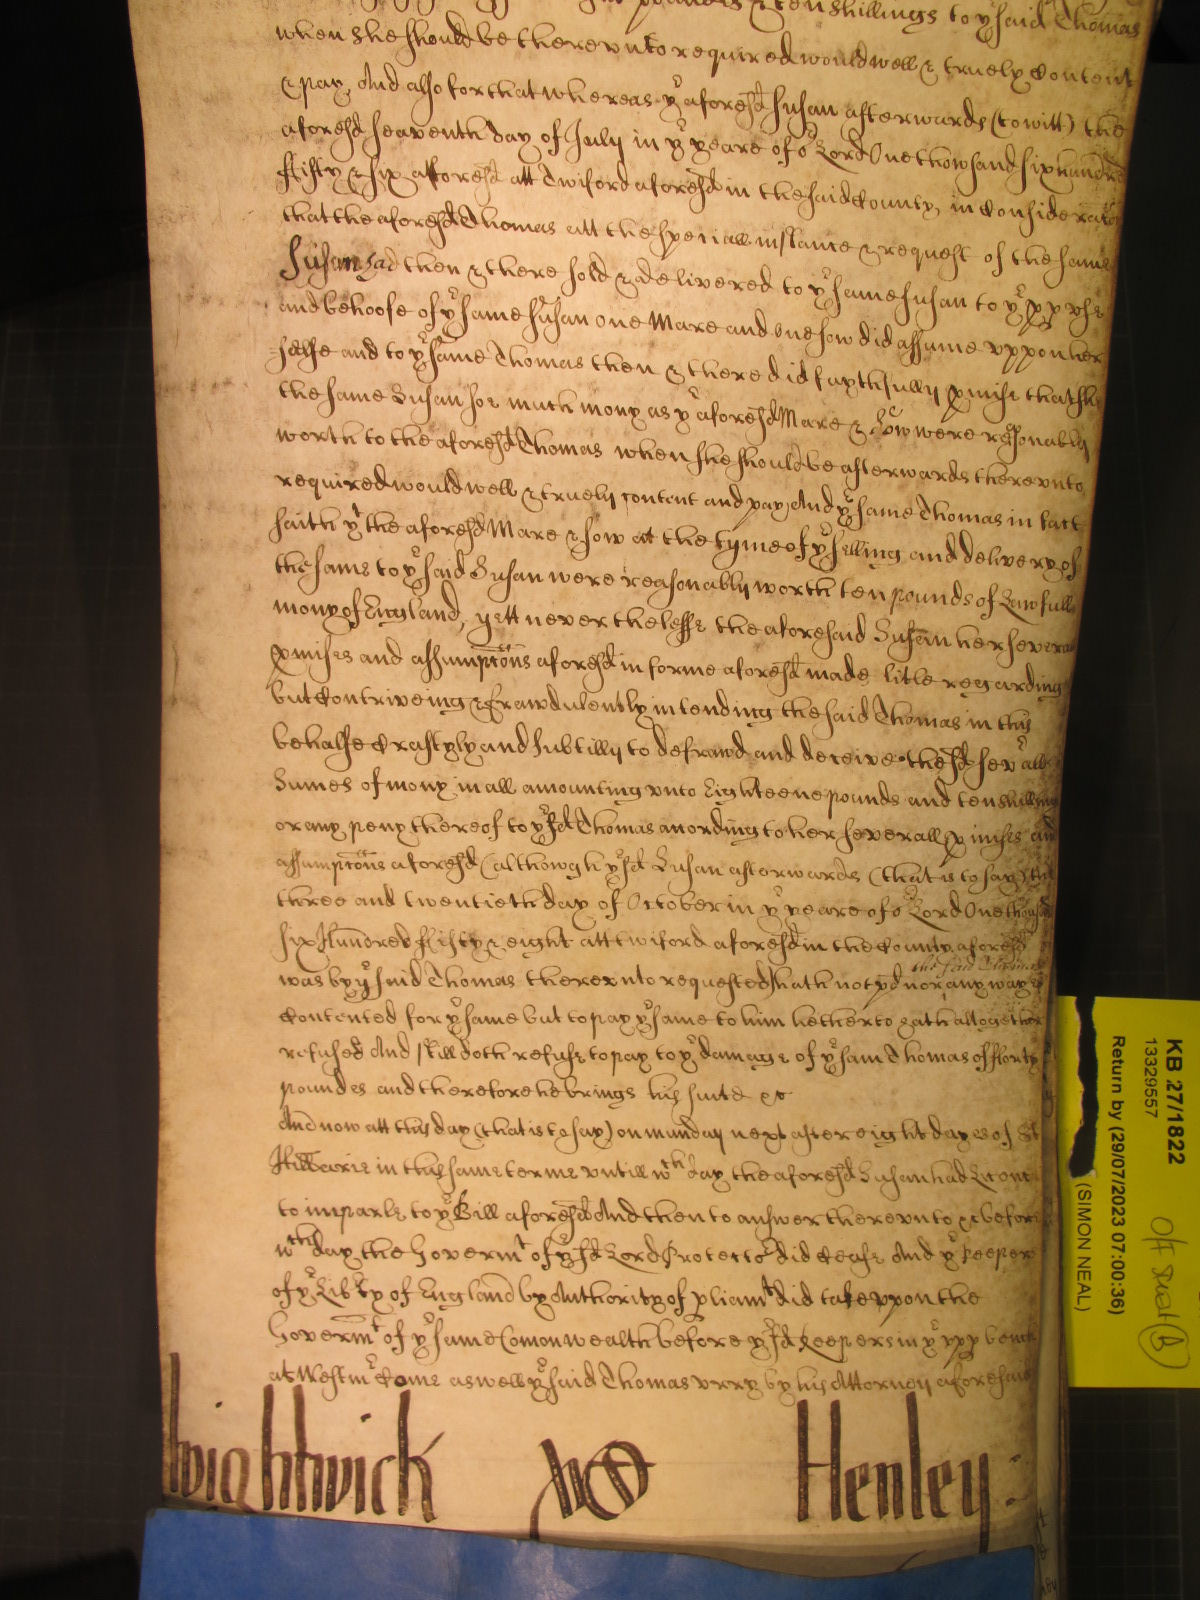 pounds & ten shillings to yͤ said Thomas
when she should be therevnto required would well & truely Content
& pay, And also for that whereas yͤ aforesd Susan afterwards (to witt) the
aforesd Seaventh day of July in yͤ yeare of oͬ Lord One thowsand six hundred
ffifty & six aforesd att Twiford aforesd in the said County, in Consideraton
that the aforesd Thomas att the speciall instance & request of the same
Susan had then & there sold & delivered to yͤ same Susan to yͤ ꝓꝑ vse
and behoofe of yͤ same Susan one Mare and one sow did assume vppon her
selfe and to yͤ same Thomas then & there did faythfully ꝓmise that she
the same Susan soe much mony as yͤ aforesd Mare & Sow were reasonably
worth to the aforesd Thomas when she should be afterwards therevnto
required would well & truely content and pay, And yͤ same Thomas in fact
saith yͭ the aforesd Mare & sow at the tyme of yͤ selling and delivery of
the same to yͤ said Susan were reasonably worth ten pounds of Lawfull
mony of England, yett neverthelesse the aforesaid Susan her severall
ꝓmises and assumptons aforesd in forme aforesd made litle regarding
but Contriveing & frawdulently intending the said Thomas in this
behalfe Craftyly and Subtilly to defrawd and deceive the sd sevͬall
Sumes of mony in all amounting vnto Eighteene pounds and ten shillings
or any peny thereof to yͤ sd Thomas according to her severall ꝓmises and
assumptons aforesd (althowgh yͤ sd Susan afterwards (that is to say) the
three and twentieth day of October in yͤ yeare of oͬ Lord One thousand
six Hundred ffifty & eight att twiford aforesd in the County aforesd
was by yͤ said Thomas therevnto requested) hath not pd nor any wayes
the said Thomas
Contented for yͤ same but to pay yͤ same to him hetherto hath altogether
refused And still doth refuse to pay to yͤ damage of yͤ same Thomas of fforty
poundes and therefore he brings his suite &c
And now att this day (that is to say) on munday next after eight dayes of St
Hillarie in this same terme vntill wᶜʰ day the aforesd Susan had Licence
to imparle to yͤ Bill aforesd And then to answer therevnto &c before
wᶜʰ day the Governmͭ of yͤ sd Lord Protectoͬ did Cease And yͤ Keepers
of yͤ Libͬty of England by Authority of ꝑliamͭ did take vppon the
Governmͭ of yͤ same Comonwealth before yͤ sd Keepers in yͤ vpꝑ bench
at Westmͬ Came aswell yͤ said Thomas vrry by his Attorney aforesaid
Wightwick Henley
KB 27/1822
13329557
Return by (29/07/2023 07:00:36)
(SIMON NEAL)